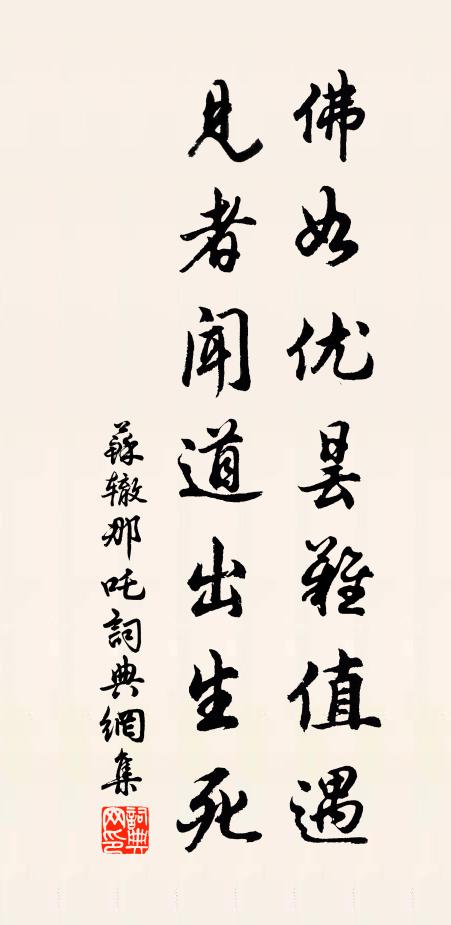 佛如优昙难值遇
见者闻道出生死
蘇辙那吒詞典網集
詞典网印